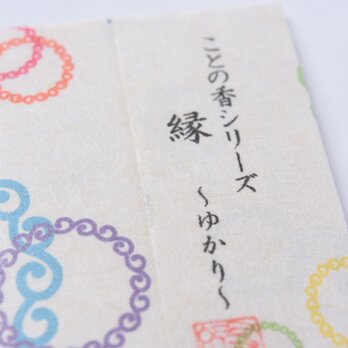 ことの香シリーズ
縁
～ゆかり～